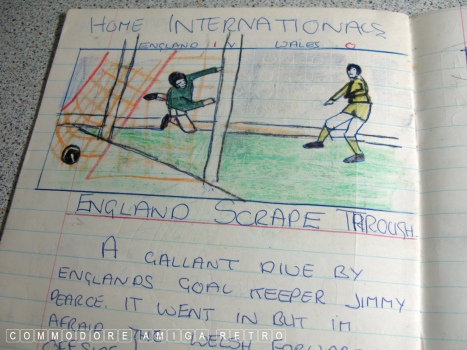 HOME INTERNATIONALS
ENGLAND 1 V WALES 0
ENGLAND SCRAPE THROUGH
A GALLANT DIVE BY
ENGLANDS GOAL KEEPER JIMMY
PEARCE. IT WENT IN BUT IM
AFRAID THE WELSH FORWARD
COMMODORE AMIGA RETRO